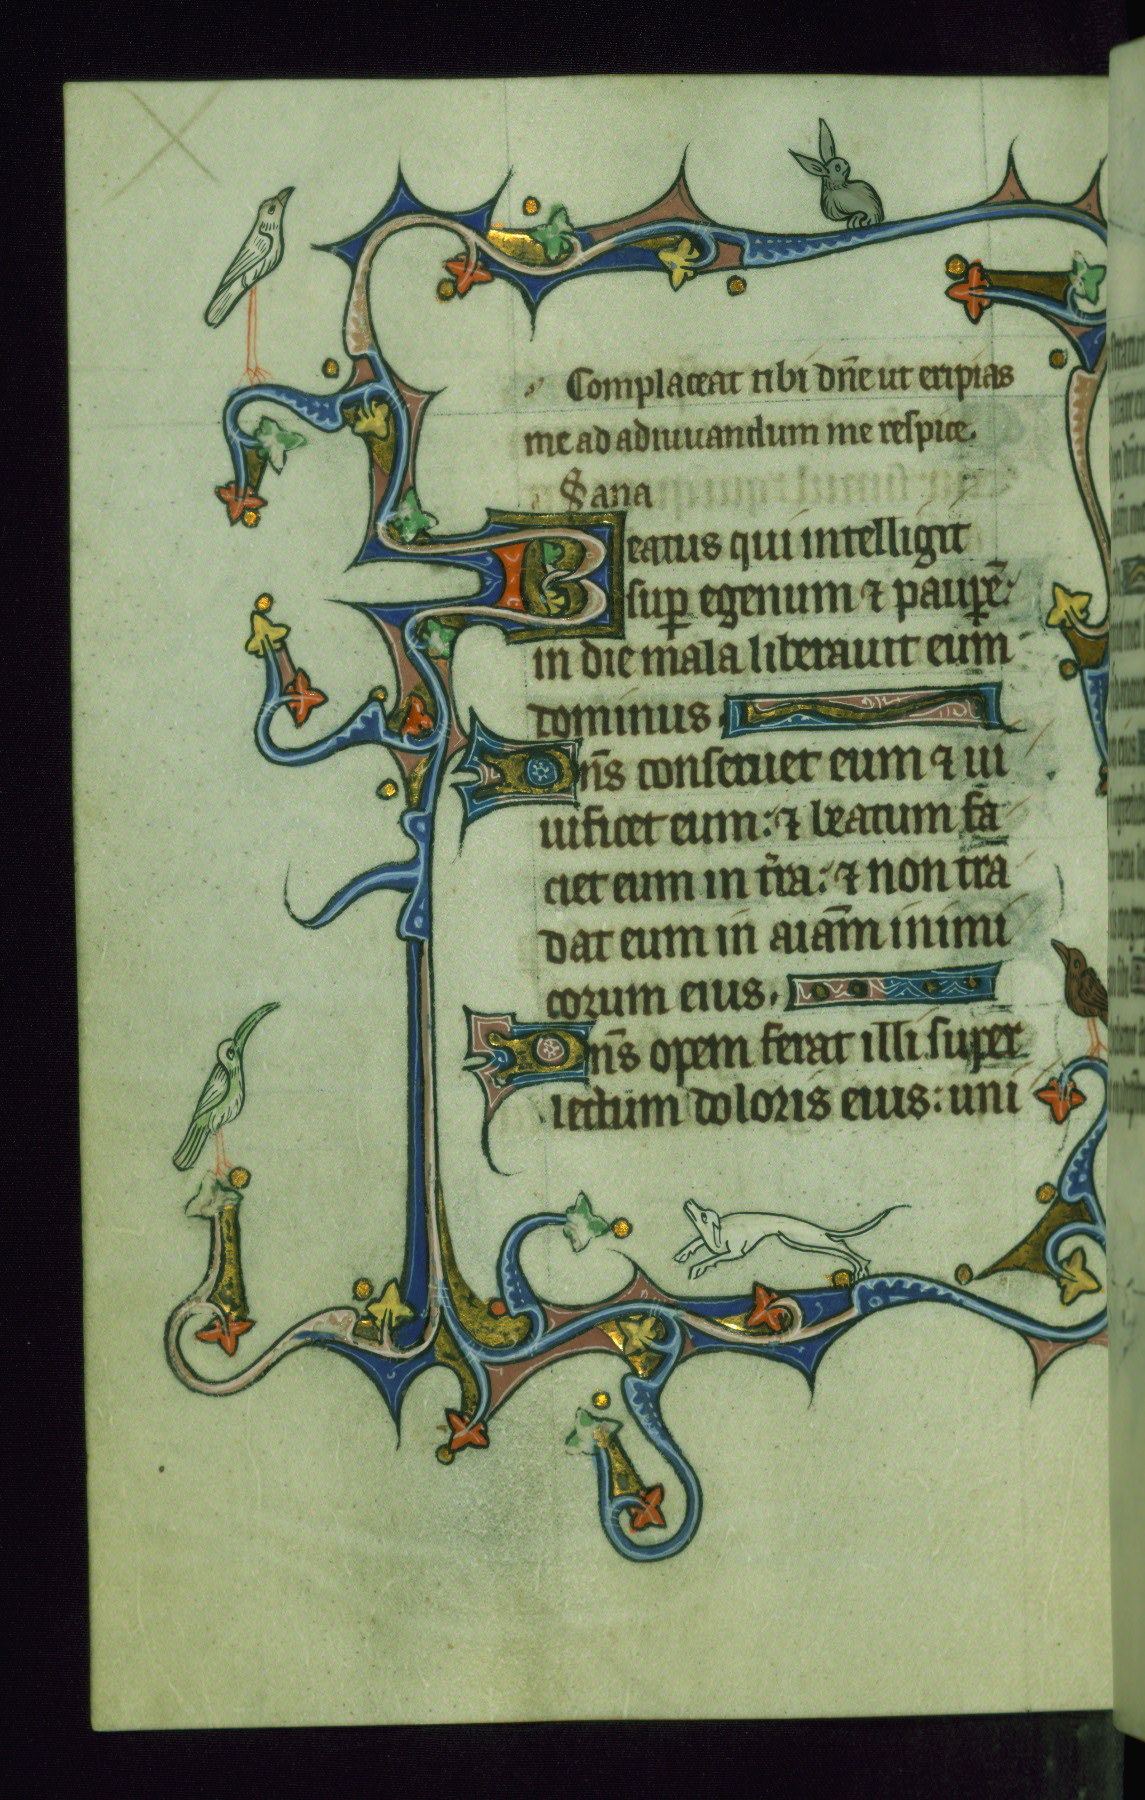 Complaceat tibi dn̄e ut eripias
me ad adiuuandum me respice.
Sana
Beatus qui intelligit
sup̱ egenum ⁊ paup̱ē:
in die mala liberauit eum
dominus.
Dn̄s conseruet eum ⁊ ui
uificet eum: ⁊ beatum fa
ciet eum in t̄ra: ⁊ non tra
dat eum in aiam̄ inimi
corum eius.
Dn̄s opem ferat illi super
lectum doloris eius: uni